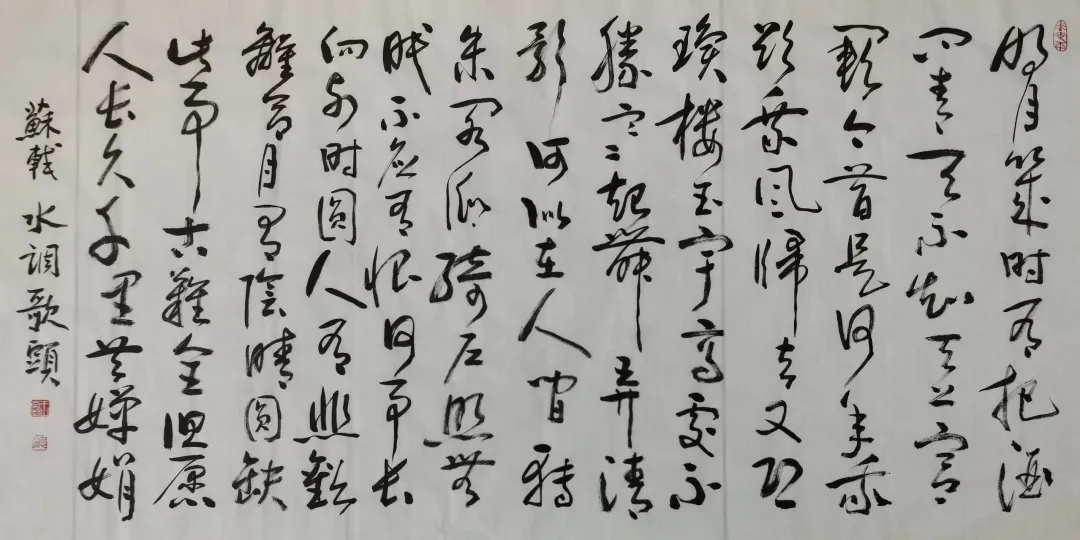 明月幾时有把酒
问青天不知天上宫
闕今昔是何年我
欲乘风歸去又恐
瓊楼玉宇高處不
勝寒起舞弄清
影何似在人间转
朱阁低绮户照無
眠不应有恨何事长
向别时圓人有悲歡
離合月有陰晴圆缺
此事古難全但愿
人长久千里共嬋娟
蘇軾 水调歌頭